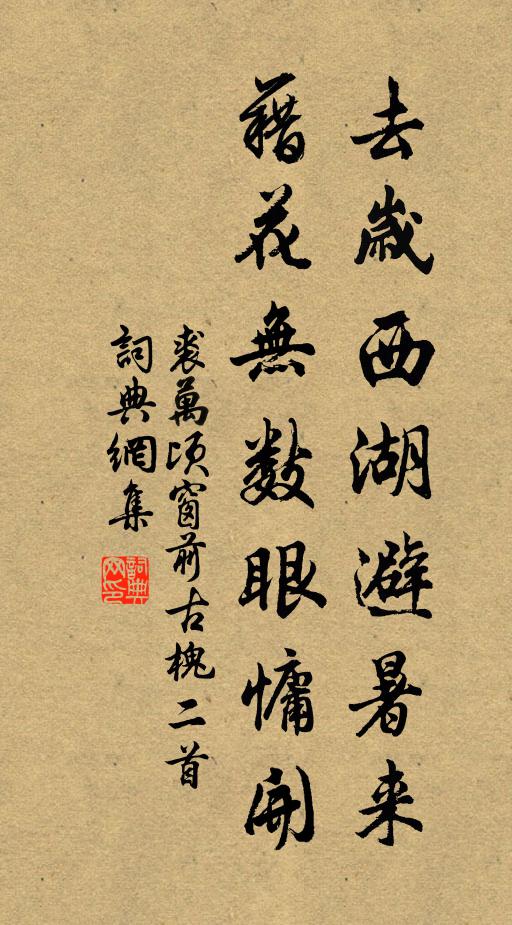 去歲西湖避暑来
藕花無数眼慵開
裘萬頃窗前古槐二首
詞典網集
詞典網印